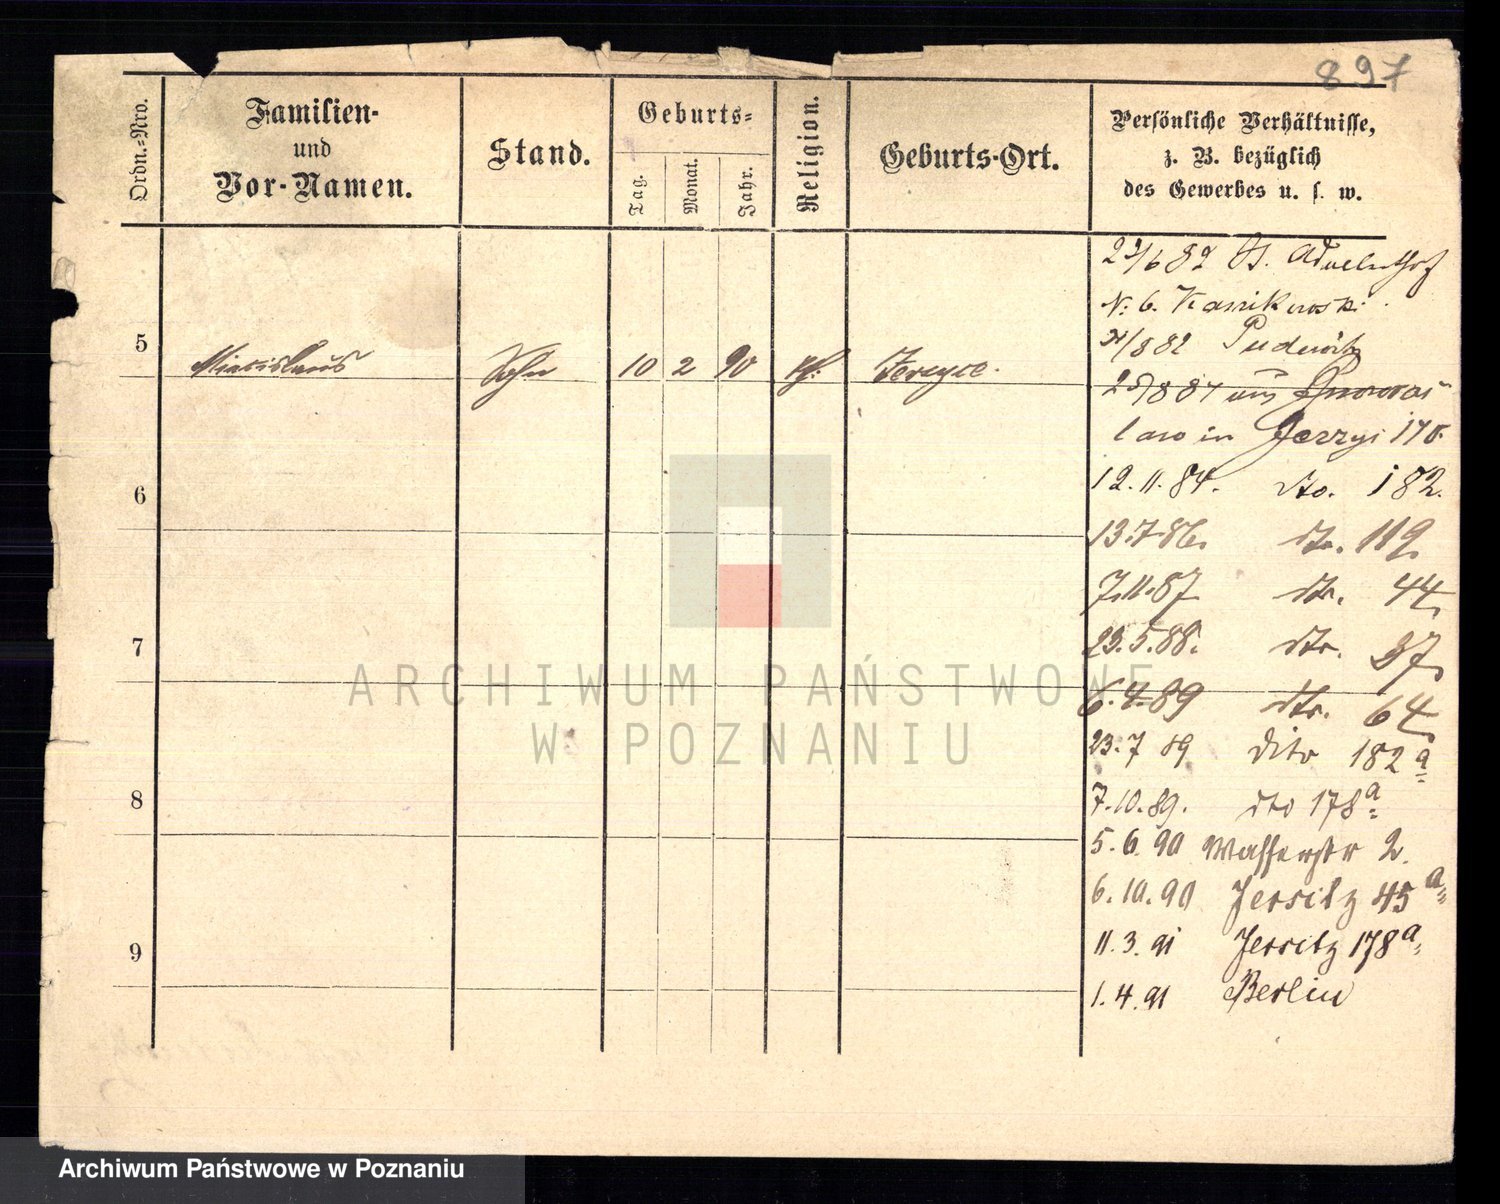 897
Ordn.-Nro.
Familien-
und
Vor-Namen.
Stand.
Geburts-
Tag.
Monat.
Jahr.
Religion.
Geburts-Ort.
Persönliche Verhältnisse,
z. B. bezüglich
des Gewerbes u. s. w.
N: 6.
/882 Pudewitz
5 Miecislaus Sohn 10 2 90 kf: Jerzyce.
25/8 84 aus Inowraz-
law in Jerzyi 170.
6
12.11.84. dto. 182.
13.7.86. dto. 119.
7.11.87. dto. 44.
23.5.88. dto. 37.
7
6.4.89 dto. 64.
23.7 89 dito 182 a
8
7.10.89. dto 178 a
5.6.90 Wasserstr 2.
6.10.90 Jersitz 45 a
9
11.3.91 Jersitz 178 a
1.4.91 Berlin
ARCHIWUM PAŃSTWOWE
W POZNANIU
Archiwum Państwowe w Poznaniu